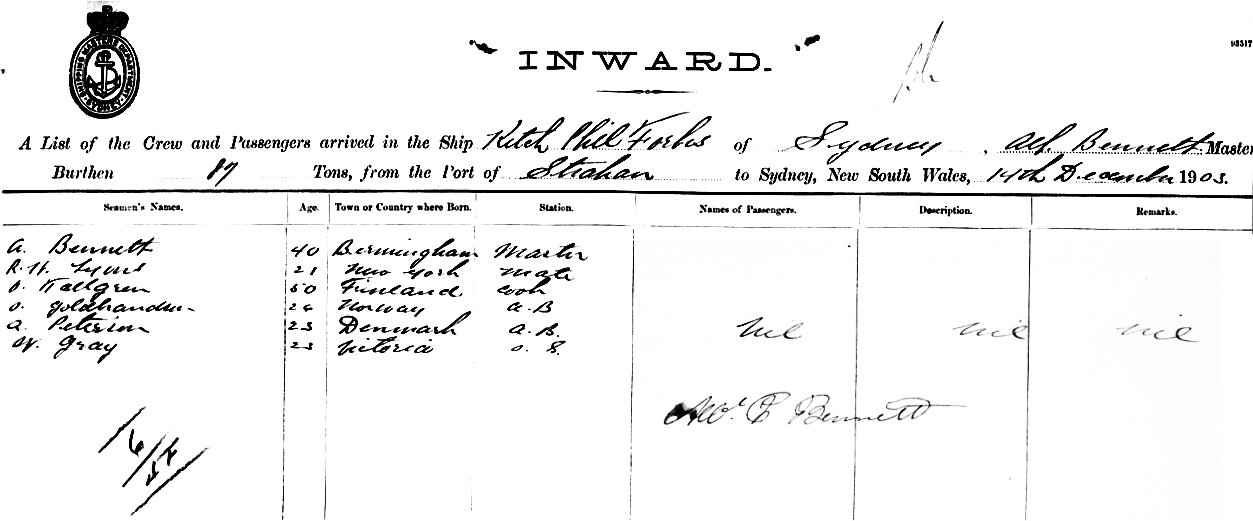 SHIPPING MASTERS DEPARTMENT SYDNEY
INWARD.
93517
A List of the Crew and Passengers arrived in the Ship Ketch Phil Forbes of Sydney, Alf Bennett Master
Burthen 87 Tons, from the Port of Strahan to Sydney, New South Wales, 14th December 1903.
Seamen's Names. Age. Town or Country where Born. Station. Names of Passengers. Description. Remarks.
A. Bennett 40 Bermingham Master
R. H. Lyons 21 New York Mate
Kallgren 50 Finland Cook
O. Goldhandsen 26 Norway A.B
A. Peterson 23 Denmark A.B. Nil Nil Nil
W. Gray 23 Victoria O.S.
Bennett